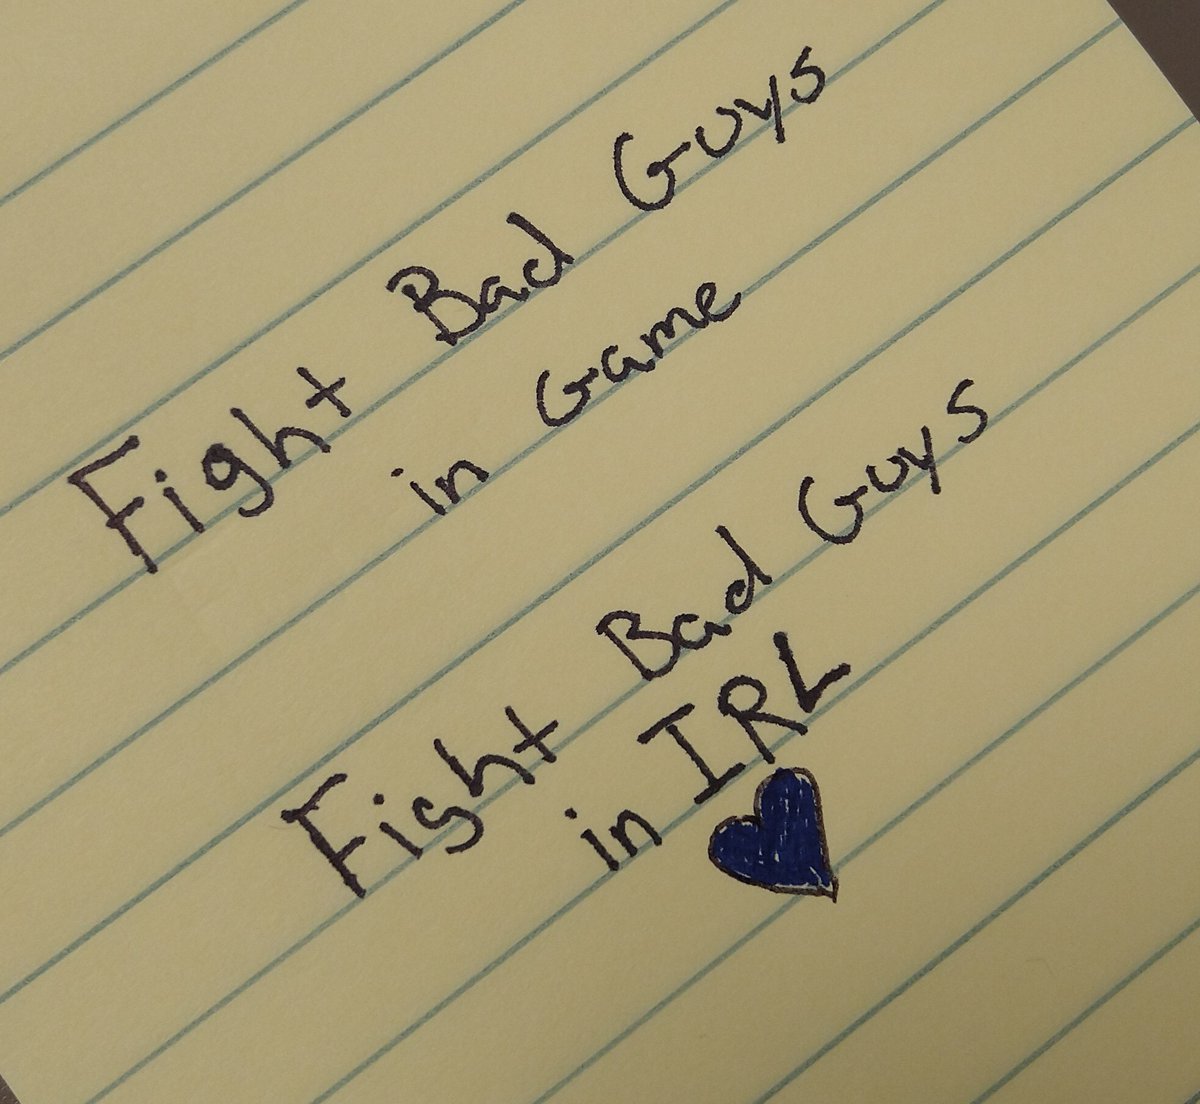 Fight Bad Guys
in Game
Fight Bad Guys
in IRL